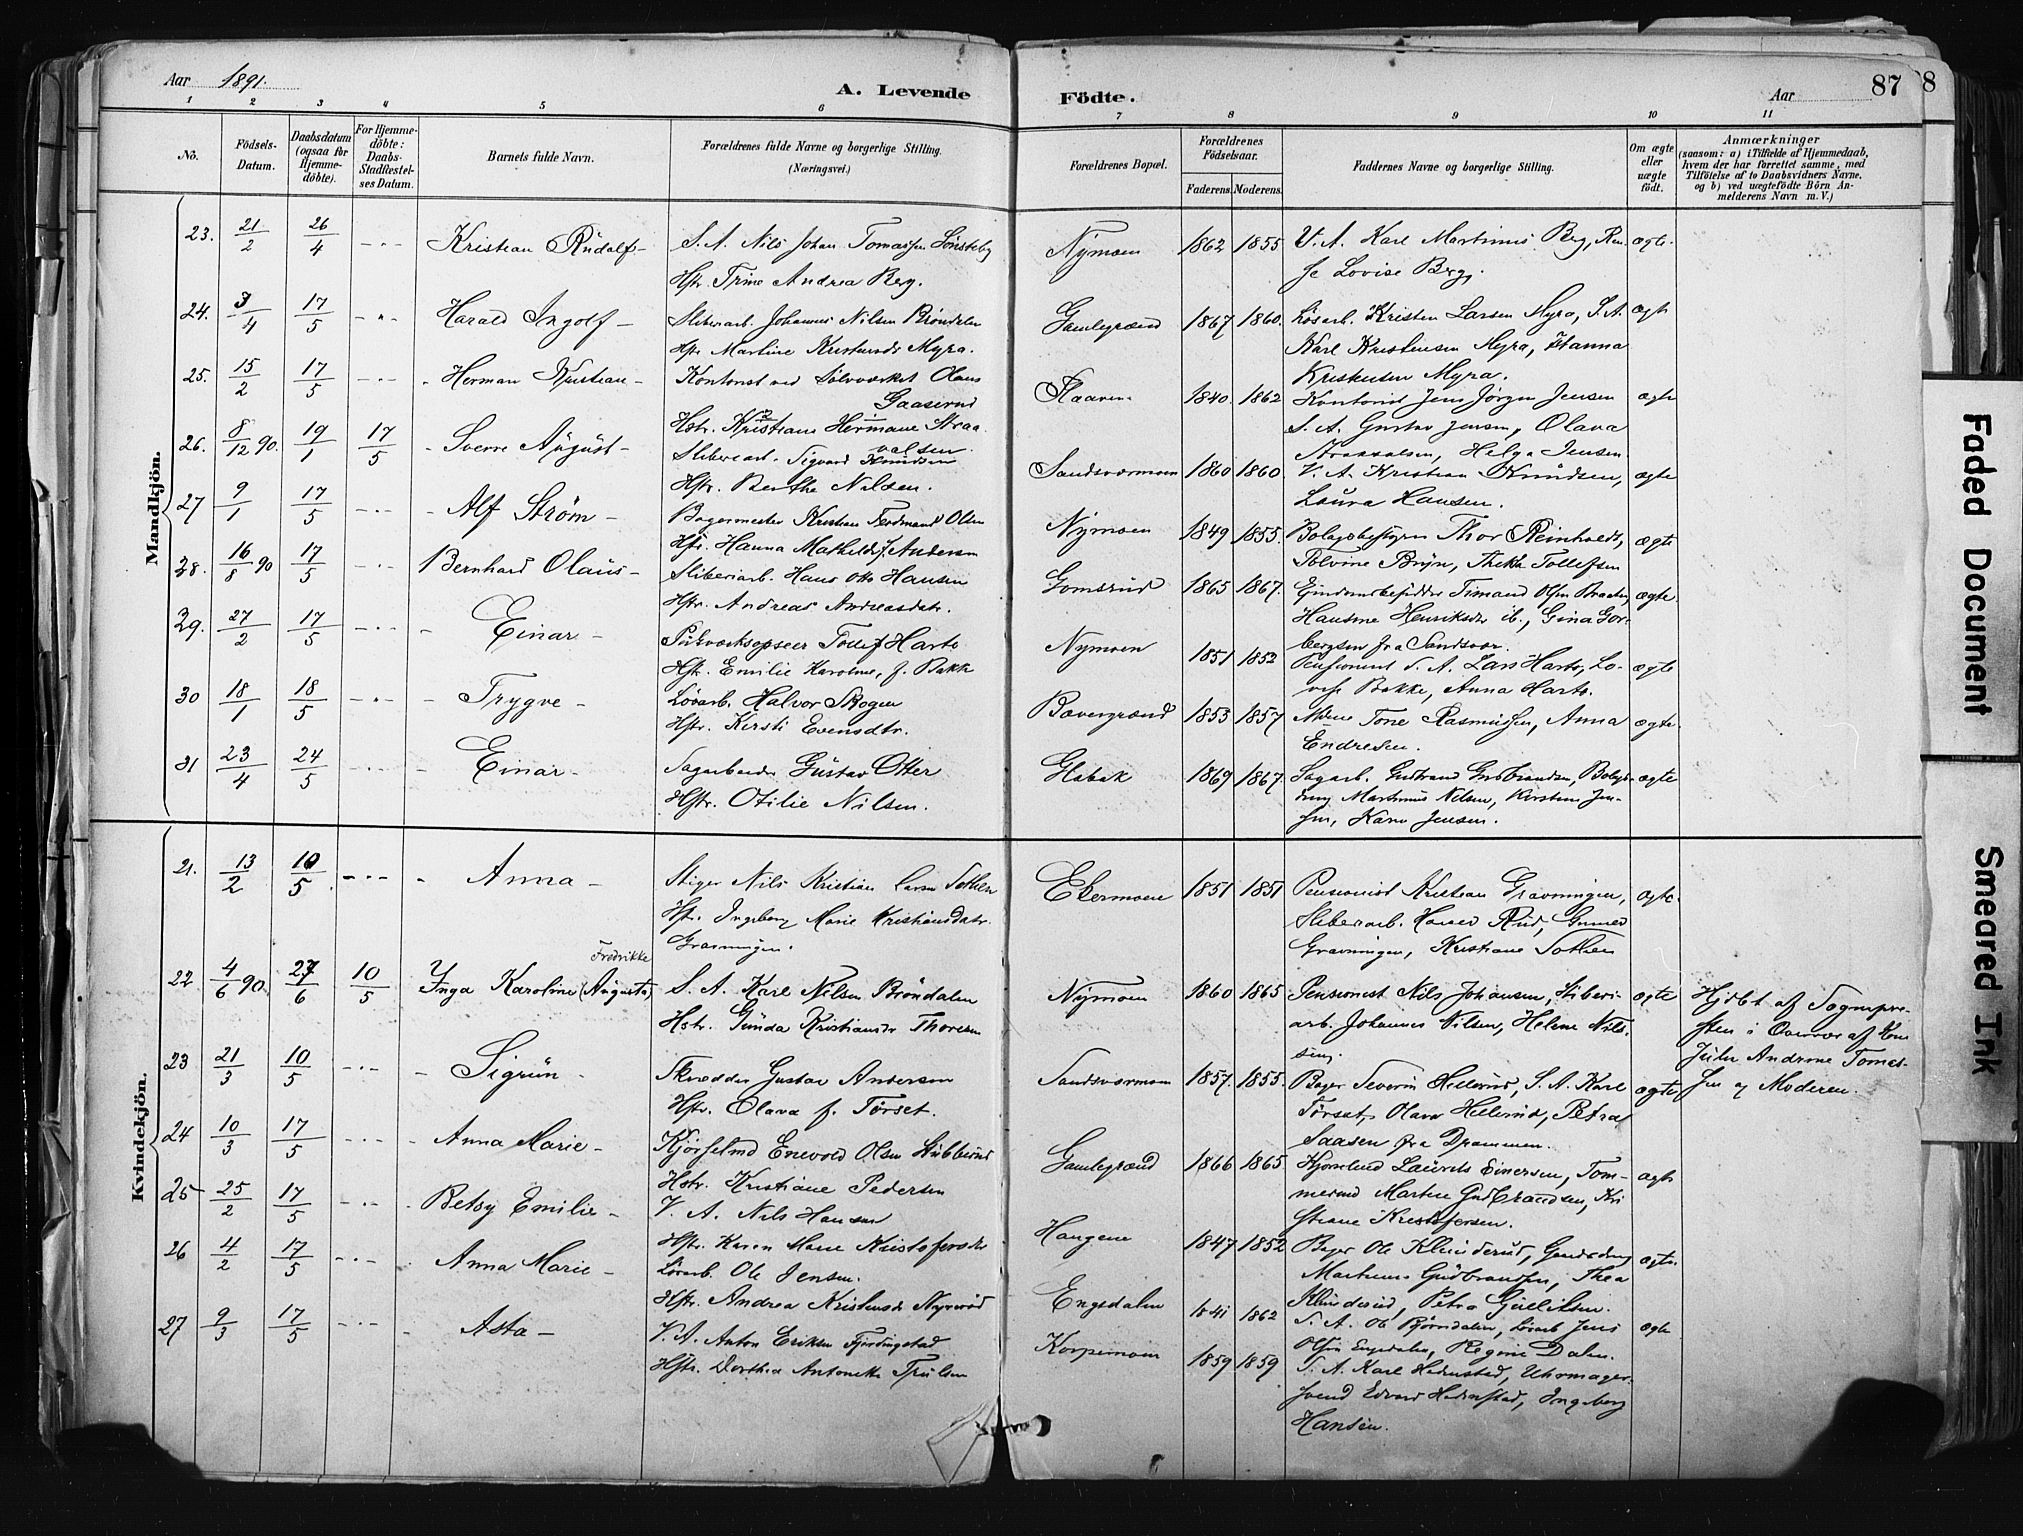 Aar 1891. A. Levende Födte. Aar 87 8
1 2 3 4 5 6 7 8 9 10 11
No. Födsels-Datum. Daabsdatum (ogsaa for Hjemme-döbte). For Hjemme-döbte: Daabs-Stadfæstel-ses Datum. Barnets fulde Navn. Forældrenes fulde Navne og borgerlige Stilling. (Næringsvei.) Forældrenes Bopæl. Forældrenes Födselsaar. Faderens. Moderens. Faddernes Navne og borgerlige Stilling. Om ægte eller uægte födt. Anmærkninger (saasom: a) i Tilfælde af Hjemmedaab, hvem der har forrettet samme, med Tilföielse af to Daabsvidners Navne, og b) ved uægtefödte Börn An-melderens Navn m. V.)
Mandkjön.
23. 21/2 26/4 Kristian Rudolf S. A. Nils Johan Tomassen Lönsteby Nymoen 1862 1855 V. A. Karl Martinus Berg, Ren- ægte
Hstr. Trine Andrea Berg. se Lovise Berg.
24. 3/4 17/5 Harald Ingolf Sliberiarb. Johannes Nilsen Bröndalen Gamlegrænd 1867 1860. Lösarb. Kristen Larsen Myra, S. A. ægte
Hstr. Martine Kristensdr Myra. Karl Kristensen Myra, Hanna
Kristensen Myra.
25. 15/2 17/5 Herman Kristian Kontorist ved Sölvværket Olaus Gaaserud 1840. 1862 Kontorist Jens Jörgen Jensen ægte
Hstr. Kristiane Hermane Straa- S. A. Gustav Jensen, Olava
valsen. Straavalsen, Helga Jensen
26. 8/12 90. 19/1 17/5 Sverre August Sliberiarb. Sigvard Knudsen Sandsværmoen 1860 1860. V. A. Kristian Knudsen, ægte
Hstr. Berthe Nilsen. Laura Hansen.
27 9/1 17/5 Alf Ström Bagermester Kristian Ferdinand Olsen Nymoen 1849 1855. Bolagsbestyrer Thor Reinholdt, ægte
Hstr. Hanna Mathilde f. Andersen Tolvine Bryn, Thekla Tollefsen
28. 16/8 90 17/5 Bernhard Olaus Sliberiarb. Hans Otto Hansen Gomsrud 1865 1867. Eiendomsbesidder Timand Olsen Braaten, ægte
Hstr. Andrea Andreasdtr. Hansine Henriksdr ib., Gina Gor-
bergsen fra Sandsvær.
29. 27/2 17/5 Einar Pukværksopseer Tollef Harto Nymoen 1851 1852 Pensionist S. A. Lars Harto, Lo- ægte
Hstr. Emilie Karoline, f. Bakke vise Bakke, Anna Harto.
30 18/1 18/5 Trygve Lösarb. Halvor Skogen Bævergrænd 1853 1857 Tone Rasmussen, Anna ægte
Hstr. Kirsti Evensdtr. Endresen.
31 23/4 24/5 Einar Sagarbeider Gustav Otter Glabak 1869 1867. Sagarb. Gulbrandsen, ægte
Hstr. Otilie Nilsen. Martinus Nilsen, Kirstine Jen-
sen, Karen Jensen.
Kvindekjön.
21. 13/2 10/5 Anna Stiger Nils Kristian Larsen Sothen Ekermoen 1851 1851 Pensionist Kristian Gravningen, ægte
Hstr. Ingeborg Marie Kristiansdatr. Sliberiarb. Rud, Gunned
Gravningen. Gravningen, Kristiane Sothen
22. 4/6 90 27/6 10/5 Inga Karoline (Augusta) Fredrikke S. A. Karl Nilsen Bröndalen Nymoen 1860 1865 Pensionist Nils Johansen, Sliberi- ægte Hjdbt af Sognepre-
Hstr. Gunda Kristiansdr Thoresen arb. Johannes Nilsen, Helene Nil- sten i Overvær af Kone
sen. Julie Andrine Tomas-
23 21/3 10/5 Sigrun Skrædder Gustav Andersen Sandsværmoen 1857. 1855. Bager Severin Hellerud, S. A. Karl ægte sen og Moderen.
Hstr. Olava f. Törset. Törset, Olava Hellerud, Petra
Saasen fra Drammen.
24 10/3 17/5 Anna Marie Kjörselmd Enevold Olsen Stubberud Gamlegrænd 1866 1865 Kjörselmd Laurits Einersen, Töm- ægte
Hstr. Kristiane Pedersen mermd Martin Gulbrandsen, Kri-
stiane Kristofersen.
25 25/2 17/5 Betsy Emilie V. A. Nils Hansen Haugene 1847 1852 Bager Ole Klunderud, Gaardsdreng ægte
Hstr. Karen Marie Kristofersdr Martinus Gudbrandsen, Thea
Klunderud, Petra Gulliksen.
26 4/2 17/5 Anna Marie Lösarb. Ole Jensen. Engsdalen 1841 1862 S. A. Ole Björndalen, Lösarb Jens ægte
Hstr. Andrea Kristensdr Olsen Engsdalen, Regine Dalen.
27 9/3 17/5 Asta V. A. Anton Eriksen Fjerdingstad Korpemoen 1859 1859 S. A. Karl Hedenstad, Uhrmager-
Hstr. Dorthea Antonette Trulsen svend Edvard Hedenstad, Ingeborg
Hansen.
Faded Document
Smeared Ink